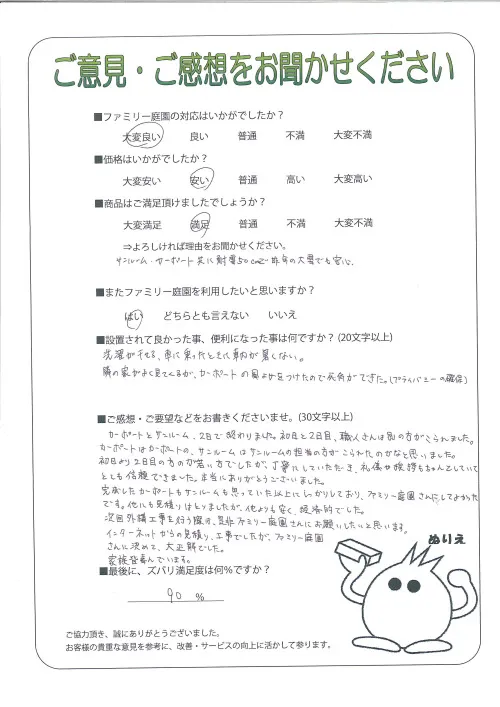 ご意見・ご感想をお聞かせください
■ファミリー庭園の対応はいかがでしたか？
大変良い 良い 普通 不満 大変不満
■価格はいかがでしたか？
大変安い 安い 普通 高い 大変高い
■商品はご満足頂けましたでしょうか？
大変満足 満足 普通 不満 大変不満
⇒よろしければ理由をお聞かせください。
サンルーム・カーポート共に耐雪50cmで昨年の大雪でも安心。
■またファミリー庭園を利用したいと思いますか？
はい どちらとも言えない いいえ
■設置されて良かった事、便利になった事は何ですか？(20文字以上)
洗濯が干せる、車に乗ったときに車内が暑くない。
隣の家がよく見えてくるが、カーポートの目よけをつけたので死角ができた。(プライバシーの確保)
■ご感想・ご要望などをお書きくださいませ。(30文字以上)
カーポートとサンルーム、2日で終わりました。初日と2日目、職人さんは別の方がこられました。
カーポートはカーポートの、サンルームはサンルームの担当の方がこられたのかなと思いました。
初日より2日目の方の方が若い方でしたが、丁寧にしていただき、礼儀や挨拶もちゃんとしていて
とても信頼できました。本当にありがとうございました。
完成したカーポートもサンルームも思っていた以上にしっかりしており、ファミリー庭園さんにしてよかった
です。他にも見積りはとりましたが、他よりも安く、経済的でした。
次回外構工事を行う際は、是非ファミリー庭園さんにお願いしたいと思います。
インターネットからの見積り、工事でしたが、ファミリー庭園
さんに決めて、大正解でした。
家族皆喜んでいます。
ぬりえ
■最後に、ズバリ満足度は何％ですか？
90 %
ご協力頂き、誠にありがとうございました。
お客様の貴重な意見を参考に、改善・サービスの向上に活かして参ります。